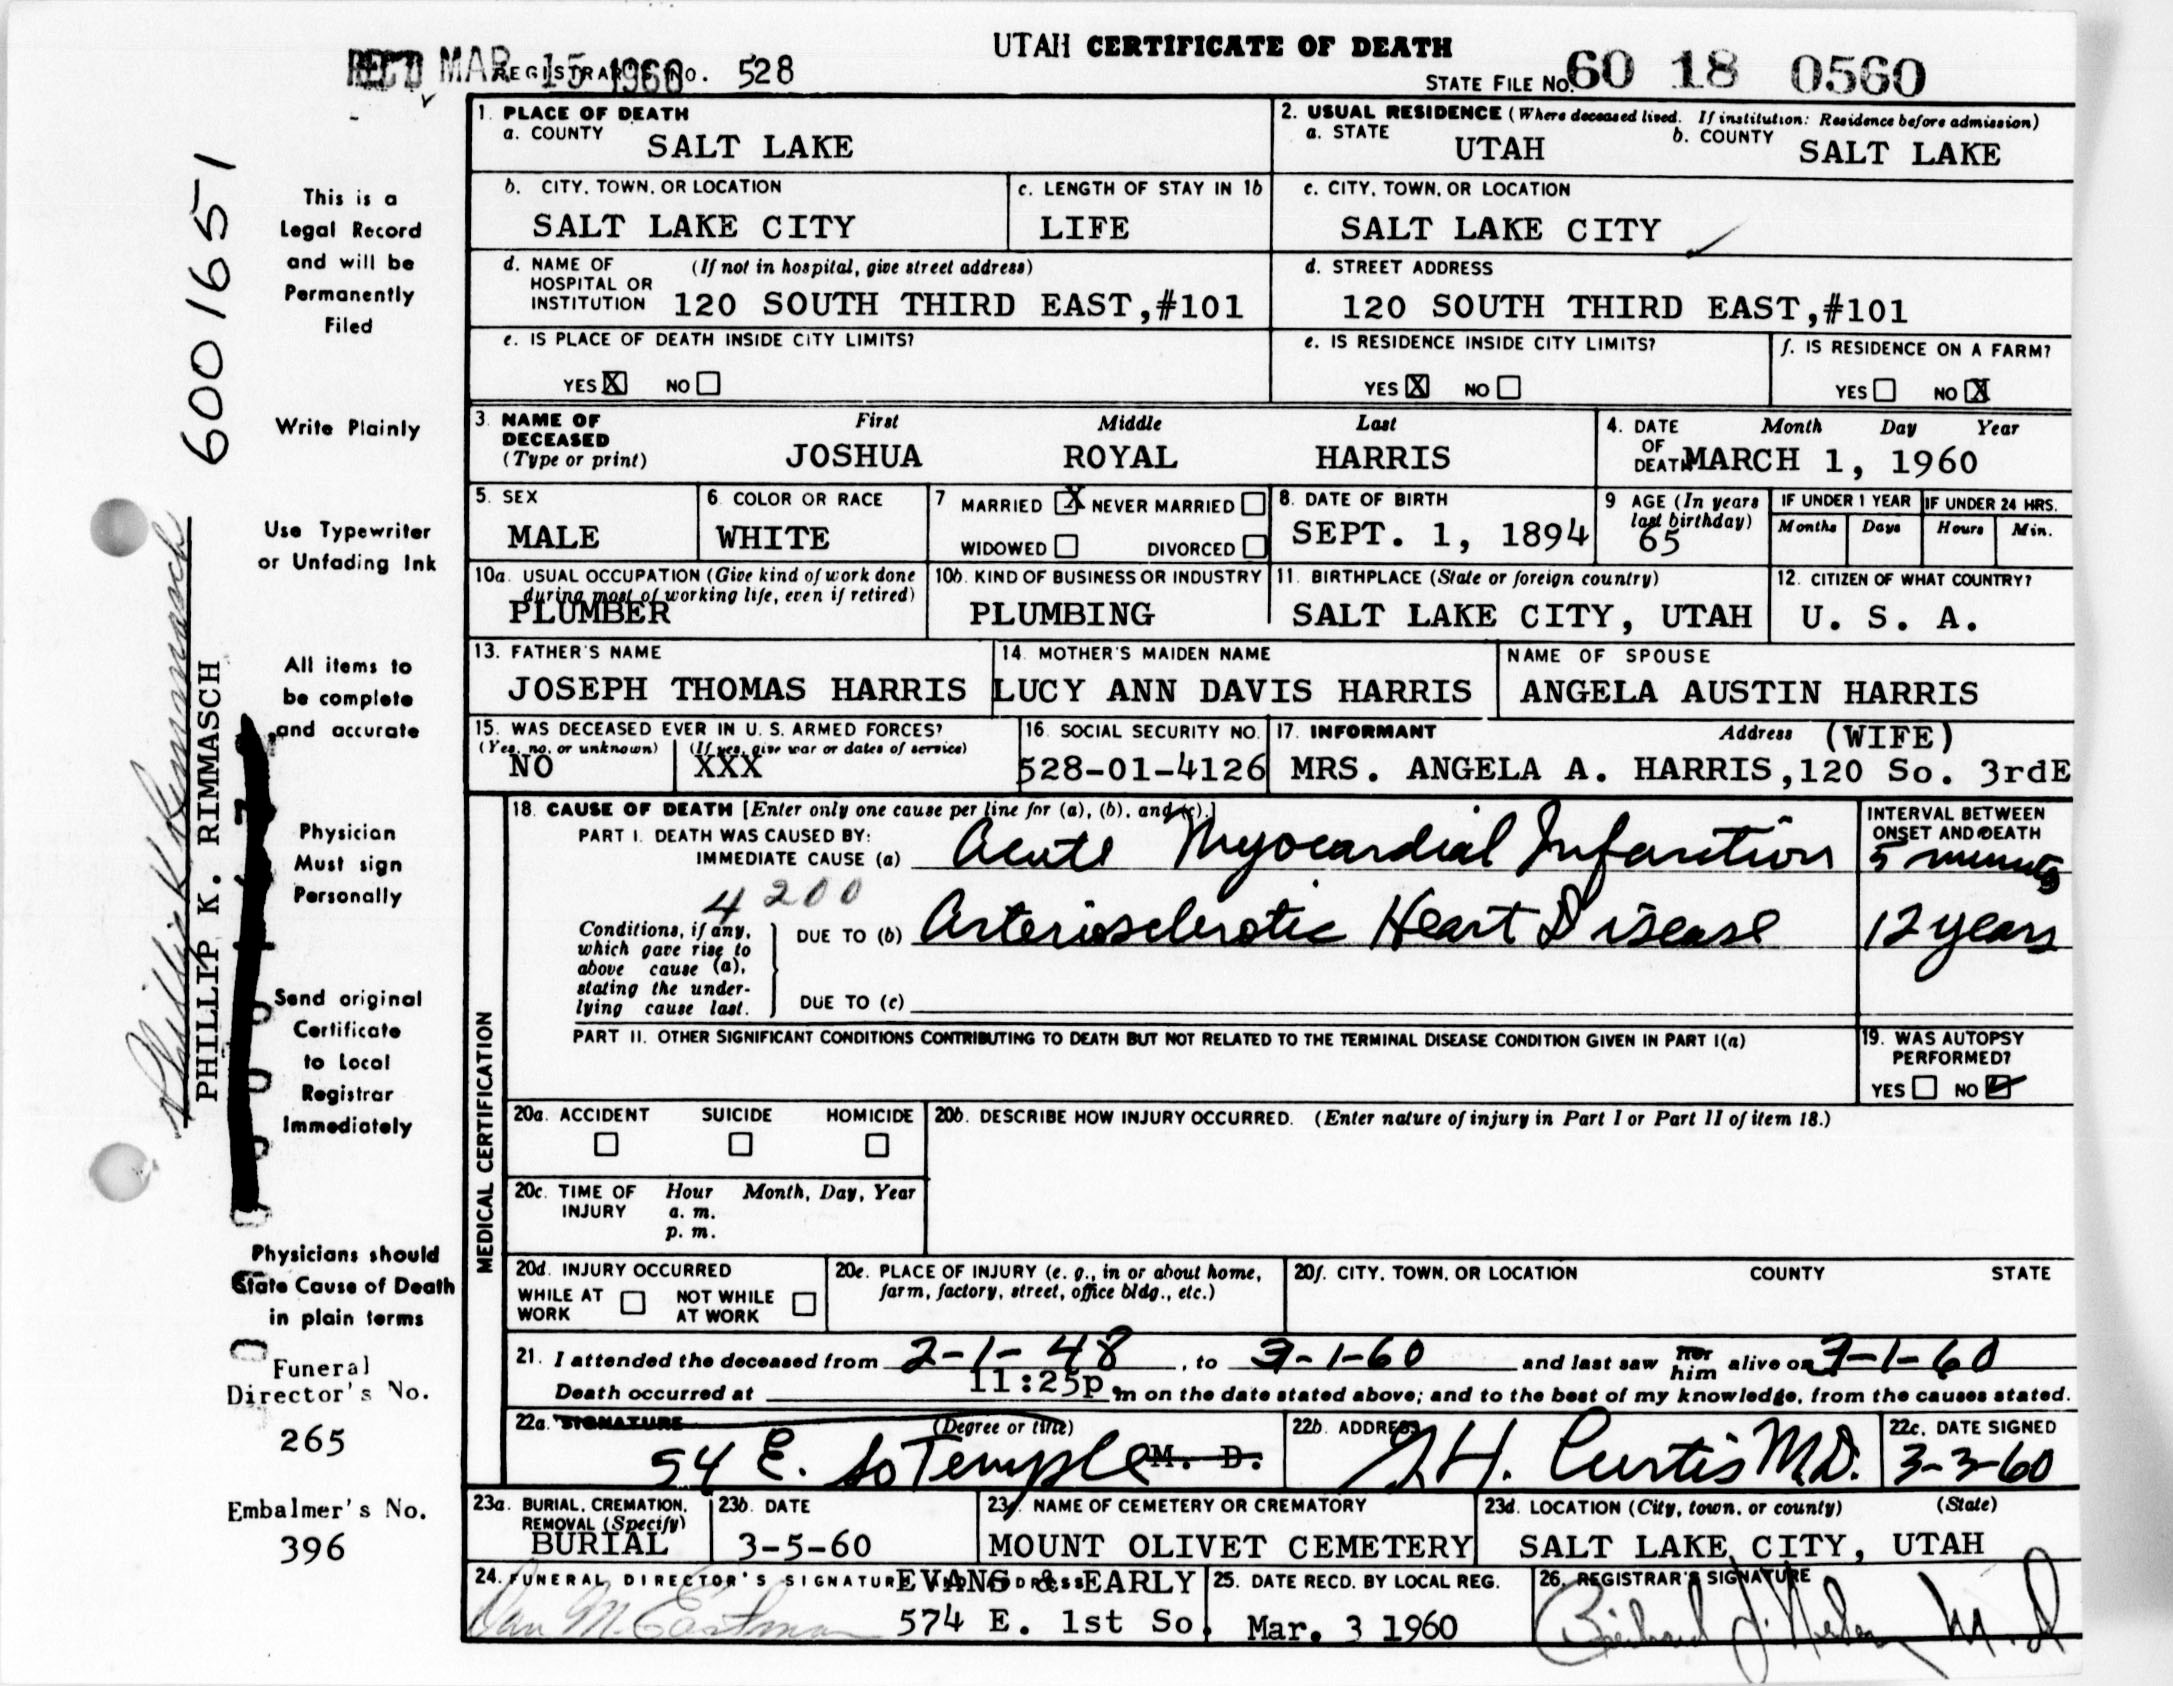 UTAH CERTIFICATE OF DEATH
REC'D MAR 15 1960 REGISTRAR'S NO. 528
STATE FILE NO. 60 18 0560
6001651
This is a
Legal Record
and will be
Permanently
Filed
Write Plainly
Use Typewriter
or Unfading Ink
All items to
be complete
and accurate
Physician
Must sign
Personally
Send original
Certificate
to Local
Registrar
Immediately
Physicians should
State Cause of Death
in plain terms
Funeral
Director's No.
265
Embalmer's No.
396
Phillip K Rimmasch
PHILLIP K. RIMMASCH
1. PLACE OF DEATH
a. COUNTY SALT LAKE
2. USUAL RESIDENCE (Where deceased lived. If institution: Residence before admission)
a. STATE UTAH b. COUNTY SALT LAKE
b. CITY, TOWN, OR LOCATION
SALT LAKE CITY
c. LENGTH OF STAY IN 1b
LIFE
c. CITY, TOWN, OR LOCATION
SALT LAKE CITY
d. NAME OF (If not in hospital, give street address)
HOSPITAL OR
INSTITUTION 120 SOUTH THIRD EAST,#101
d. STREET ADDRESS
120 SOUTH THIRD EAST,#101
e. IS PLACE OF DEATH INSIDE CITY LIMITS?
YES X NO
e. IS RESIDENCE INSIDE CITY LIMITS?
YES X NO
f. IS RESIDENCE ON A FARM?
YES NO X
3. NAME OF DECEASED (Type or print)
First Middle Last
JOSHUA ROYAL HARRIS
4. DATE OF DEATH Month Day Year
MARCH 1, 1960
5. SEX
MALE
6. COLOR OR RACE
WHITE
7 MARRIED X NEVER MARRIED
WIDOWED DIVORCED
8. DATE OF BIRTH
SEPT. 1, 1894
9 AGE (In years last birthday)
65
IF UNDER 1 YEAR
Months Days
IF UNDER 24 HRS.
Hours Min.
10a. USUAL OCCUPATION (Give kind of work done during most of working life, even if retired)
PLUMBER
10b. KIND OF BUSINESS OR INDUSTRY
PLUMBING
11. BIRTHPLACE (State or foreign country)
SALT LAKE CITY, UTAH
12. CITIZEN OF WHAT COUNTRY?
U. S. A.
13. FATHER'S NAME
JOSEPH THOMAS HARRIS
14. MOTHER'S MAIDEN NAME
LUCY ANN DAVIS HARRIS
NAME OF SPOUSE
ANGELA AUSTIN HARRIS
15. WAS DECEASED EVER IN U. S. ARMED FORCES?
(Yes, no, or unknown) (If yes, give war or dates of service)
NO XXX
16. SOCIAL SECURITY NO.
528-01-4126
17. INFORMANT Address (WIFE)
MRS. ANGELA A. HARRIS,120 So. 3rdE
MEDICAL CERTIFICATION
18. CAUSE OF DEATH [Enter only one cause per line for (a), (b), and (c).]
PART I. DEATH WAS CAUSED BY:
IMMEDIATE CAUSE (a) Acute Myocardial Infarction
INTERVAL BETWEEN ONSET AND DEATH
5 minutes
4200
Conditions, if any, which gave rise to above cause (a), stating the underlying cause last.
DUE TO (b) Arteriosclerotic Heart Disease
12 years
DUE TO (c)
PART II. OTHER SIGNIFICANT CONDITIONS CONTRIBUTING TO DEATH BUT NOT RELATED TO THE TERMINAL DISEASE CONDITION GIVEN IN PART I(a)
19. WAS AUTOPSY PERFORMED?
YES NO
20a. ACCIDENT SUICIDE HOMICIDE
20b. DESCRIBE HOW INJURY OCCURRED. (Enter nature of injury in Part I or Part II of item 18.)
20c. TIME OF INJURY Hour Month, Day, Year
a. m.
p. m.
20d. INJURY OCCURRED
WHILE AT WORK NOT WHILE AT WORK
20e. PLACE OF INJURY (e. g., in or about home, farm, factory, street, office bldg., etc.)
20f. CITY, TOWN, OR LOCATION COUNTY STATE
21. I attended the deceased from 2-1-48, to 3-1-60 and last saw her him alive on 3-1-60
Death occurred at 11:25p m on the date stated above; and to the best of my knowledge, from the causes stated.
22a. SIGNATURE (Degree or title)
54 E. So Temple M. D.
22b. ADDRESS
H. Curtis M.D.
22c. DATE SIGNED
3-3-60
23a. BURIAL, CREMATION, REMOVAL (Specify)
BURIAL
23b. DATE
3-5-60
23c. NAME OF CEMETERY OR CREMATORY
MOUNT OLIVET CEMETERY
23d. LOCATION (City, town, or county) (State)
SALT LAKE CITY, UTAH
24. FUNERAL DIRECTOR'S SIGNATURE AND ADDRESS EVANS & EARLY
574 E. 1st So.
25. DATE RECD. BY LOCAL REG.
Mar. 3 1960
26. REGISTRAR'S SIGNATURE